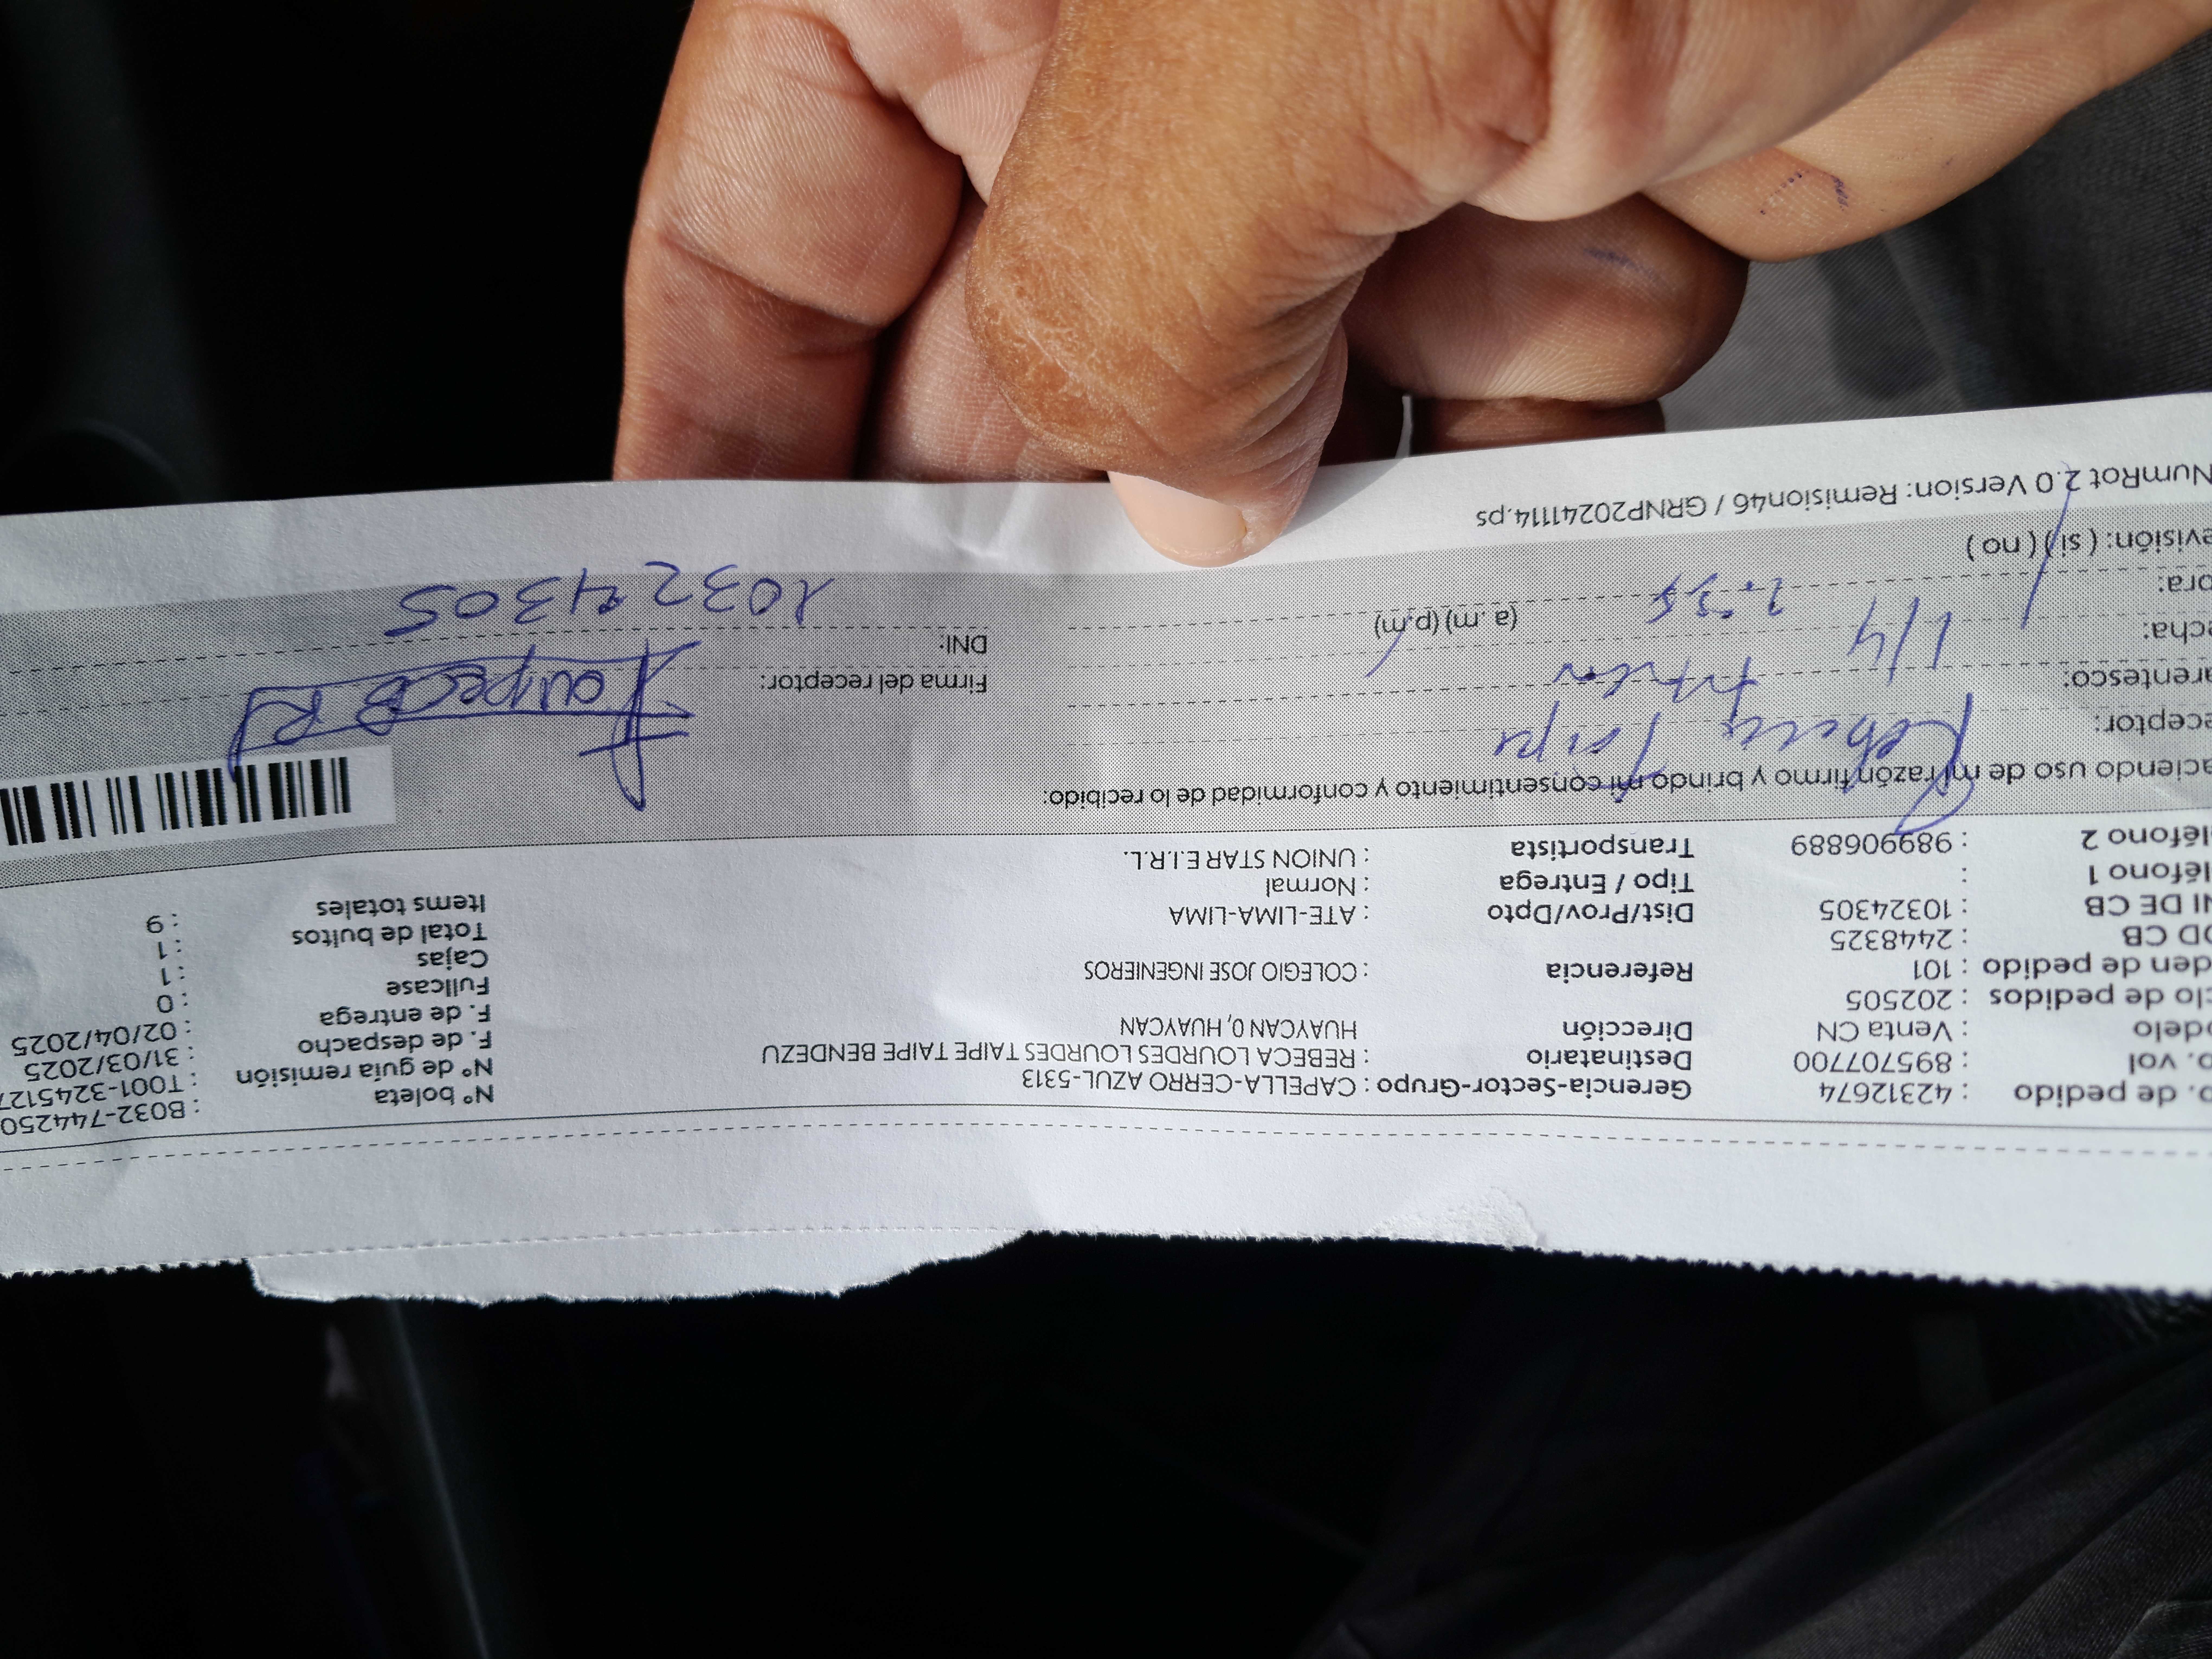 o. de pedido : 42312674 Gerencia-Sector-Grupo : CAPELLA-CERRO AZUL-5313 N° boleta : B032-744250
o. vol : 895707700 Destinatario : REBECA LOURDES LOURDES TAIPE TAIPE BENDEZU N° de guía remisión : T001-3245127
odelo : Venta CN Dirección HUAYCAN 0, HUAYCAN F. de despacho : 31/03/2025
clo de pedidos : 202505 F. de entrega : 02/04/2025
den de pedido : 101 Referencia : COLEGIO JOSE INGENIEROS Fullcase : 0
OD CB : 2448325 Cajas : 1
NI DE CB : 10324305 Dist/Prov/Dpto : ATE-LIMA-LIMA Total de bultos : 1
léfono 1 : Tipo / Entrega : Normal Items totales : 9
léfono 2 : 989906889 Transportista : UNION STAR E.I.R.L.
aciendo uso de mi razón firmo y brindo mi consentimiento y conformidad de lo recibido:
eceptor: Rebeca Taipe
arentesco: Firma del receptor:
echa: 1/4 DNI: 10324305
ora: (a. m) (p.m)
evisión: ( si ) ( no )
NumRot 2.0 Version: Remision46 / GRNP20241114.ps